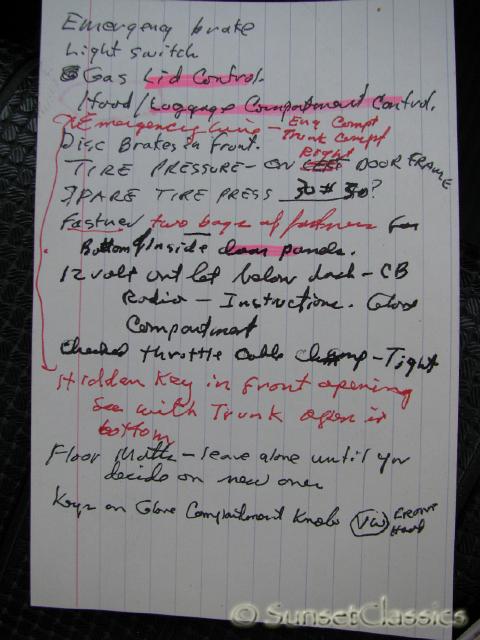 Emergency brake
Light switch
Gas Lid Control.
Hood/Luggage Compartment Control.
Emergency wire - Eng Compt
Trunk Compt
Disc Brakes in Front. Right
TIRE PRESSURE - ON DOOR FRAME
SPARE TIRE PRESS 30# 30?
Fastner two bags of fastners for
Bottom/Inside door panels.
12 volt outlet below dash - CB
Radio - Instructions. Glove
Compartment
Checked throttle cable Clamp - Tight
Hidden Key in front opening
See with Trunk open in
bottom
Floor Matts - leave alone until you
decide on new ones
Keys on Glove Compartment Knob VW FRONT
Hood
© SunsetClassics